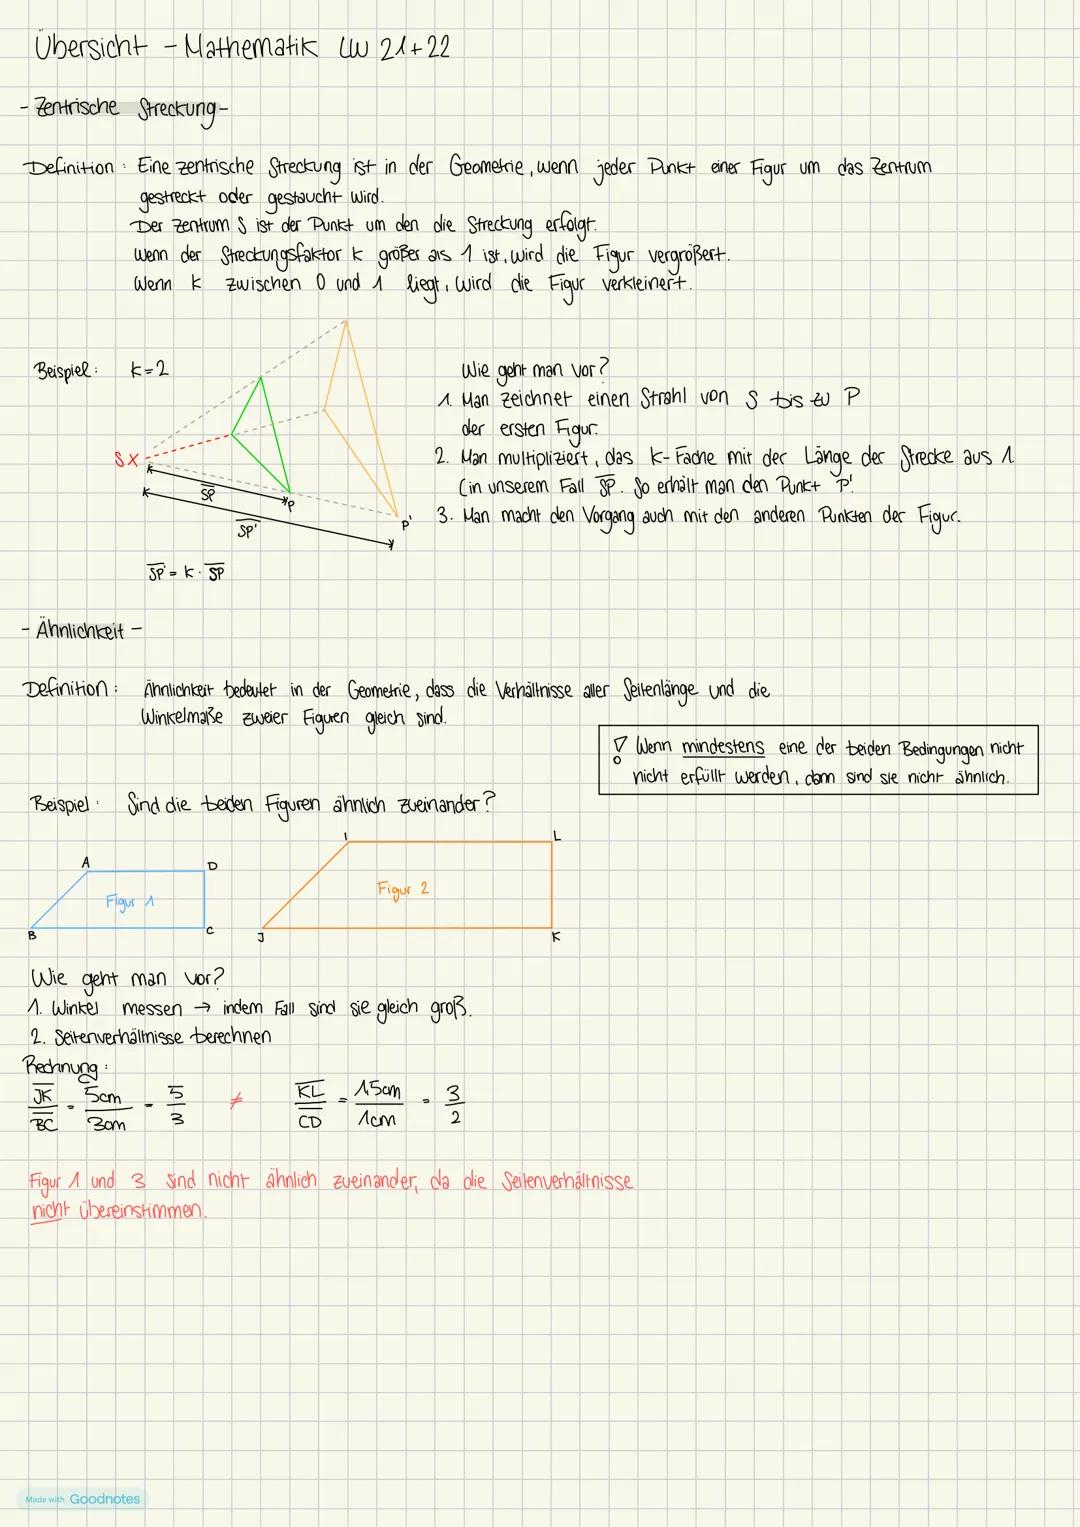 Übersicht - Mathematik LW 21+22
- Zentrische Streckung -
Definition : Eine zentrische Streckung ist in der Geometrie, wenn jeder Punkt einer Figur um das Zentrum
gestreckt oder gestaucht wird.
Der Zentrum S ist der Punkt um den die Streckung erfolgt.
Wenn der Streckungsfaktor k größer als 1 ist, wird die Figur vergrößert.
Wenn k zwischen 0 und 1 liegt, wird die Figur verkleinert.
Beispiel : k=2
S X
SP
P
SP'
P'
SP' = k · SP
Wie geht man vor?
1. Man zeichnet einen Strahl von S bis zu P
der ersten Figur.
2. Man multipliziert, das k-Fache mit der Länge der Strecke aus 1.
(in unserem Fall SP. So erhält man den Punkt P'.
3. Man macht den Vorgang auch mit den anderen Punkten der Figur.
- Ähnlichkeit -
Definition : Ähnlichkeit bedeutet in der Geometrie, dass die Verhältnisse aller Seitenlänge und die
Winkelmaße zweier Figuren gleich sind.
! Wenn mindestens eine der beiden Bedingungen nicht
nicht erfüllt werden, dann sind sie nicht ähnlich.
Beispiel : Sind die beiden Figuren ähnlich zueinander?
A D
Figur 1
B C
I L
Figur 2
J K
Wie geht man vor?
1. Winkel messen → indem Fall sind sie gleich groß.
2. Seitenverhältnisse berechnen
Rechnung :
JK/BC = 5cm/3cm = 5/3 ≠ KL/CD = 1,5cm/1cm = 3/2
Figur 1 und 3 sind nicht ähnlich zueinander, da die Seitenverhältnisse
nicht übereinstimmen.
Made with Goodnotes